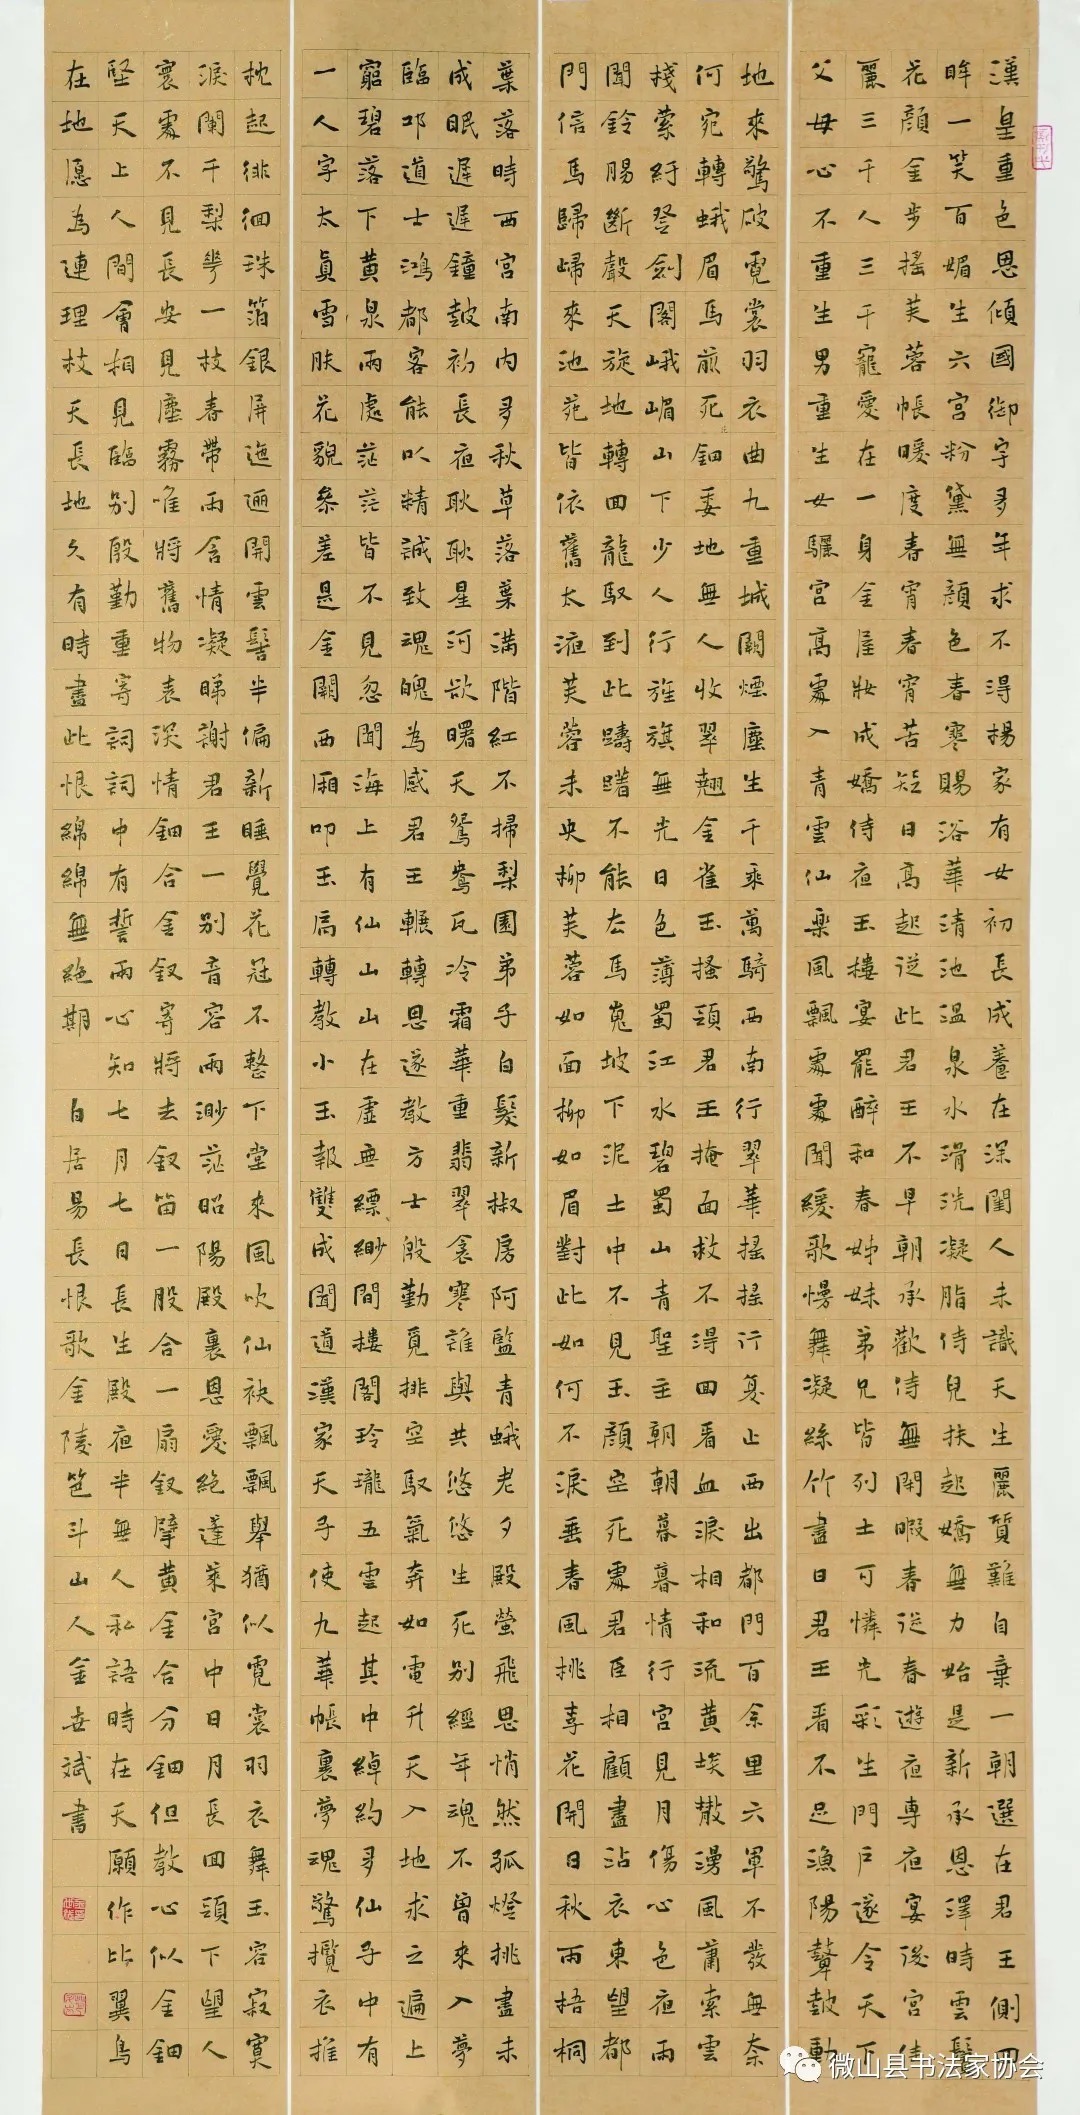 漢皇重色思傾國御宇多年求不得楊家有女初長成養在深閨人未識天生麗質難自棄一朝選在君王側回
眸一笑百媚生六宮粉黛無顏色春寒賜浴華清池溫泉水滑洗凝脂侍兒扶起嬌無力始是新承恩澤時雲鬢
花顏金步搖芙蓉帳暖度春宵春宵苦短日高起從此君王不早朝承歡侍無閑暇春從春遊夜專夜宴後宮佳
麗三千人三千寵愛在一身金屋妝成嬌侍夜玉樓宴罷醉和春姊妹弟兄皆列士可憐光彩生門戶遂令天下
父母心不重生男重生女驪宮高處入青雲仙樂風飄處處聞緩歌慢舞凝絲竹盡日君王看不足漁陽鼙鼓動
地來驚破霓裳羽衣曲九重城闕煙塵生千乘萬騎西南行翠華搖搖行復止西出都門百余里六軍不發無奈
何宛轉蛾眉馬前死鈿委地無人收翠翹金雀玉搔頭君王掩面救不得回看血淚相和流黃埃散漫風蕭索雲
棧縈紆登劍閣峨嵋山下少人行旌旗無光日色薄蜀江水碧蜀山青聖主朝朝暮暮情行宮見月傷心色夜雨
聞鈴腸斷聲天旋地轉回龍馭到此躊躇不能去馬嵬坡下泥土中不見玉顏空死處君臣相顧盡沾衣東望都
門信馬歸歸來池苑皆依舊太液芙蓉未央柳芙蓉如面柳如眉對此如何不淚垂春風桃李花開日秋雨梧桐
葉落時西宮南內多秋草落葉滿階紅不掃梨園弟子白髮新椒房阿監青蛾老夕殿螢飛思悄然孤燈挑盡未
成眠遲遲鐘鼓初長夜耿耿星河欲曙天鴛鴦瓦冷霜華重翡翠衾寒誰與共悠悠生死別經年魂不曾來入夢
臨邛道士鴻都客能以精誠致魂魄為感君王輾轉思遂教方士殷勤覓排空馭氣奔如電升天入地求之遍上
窮碧落下黃泉兩處茫茫皆不見忽聞海上有仙山山在虛無縹緲間樓閣玲瓏五雲起其中綽約多仙子中有
一人字太真雪膚花貌參差是金闕西廂叩玉扃轉教小玉報雙成聞道漢家天子使九華帳裏夢魂驚攬衣推
枕起徘徊珠箔銀屏迤邐開雲髻半偏新睡覺花冠不整下堂來風吹仙袂飄飄舉猶似霓裳羽衣舞玉容寂寞
淚闌干梨花一枝春帶雨含情凝睇謝君王一別音容兩渺茫昭陽殿裏恩愛絕蓬萊宮中日月長回頭下望人
寰處不見長安見塵霧唯將舊物表深情鈿合金釵寄將去釵留一股合一扇釵擘黃金合分鈿但教心似金鈿
堅天上人間會相見臨別殷勤重寄詞詞中有誓兩心知七月七日長生殿夜半無人私語時在天願作比翼鳥
在地愿為連理枝天長地久有時盡此恨綿綿無絕期 白居易長恨歌金陵笆斗山人金世斌書
微山县书法家协会